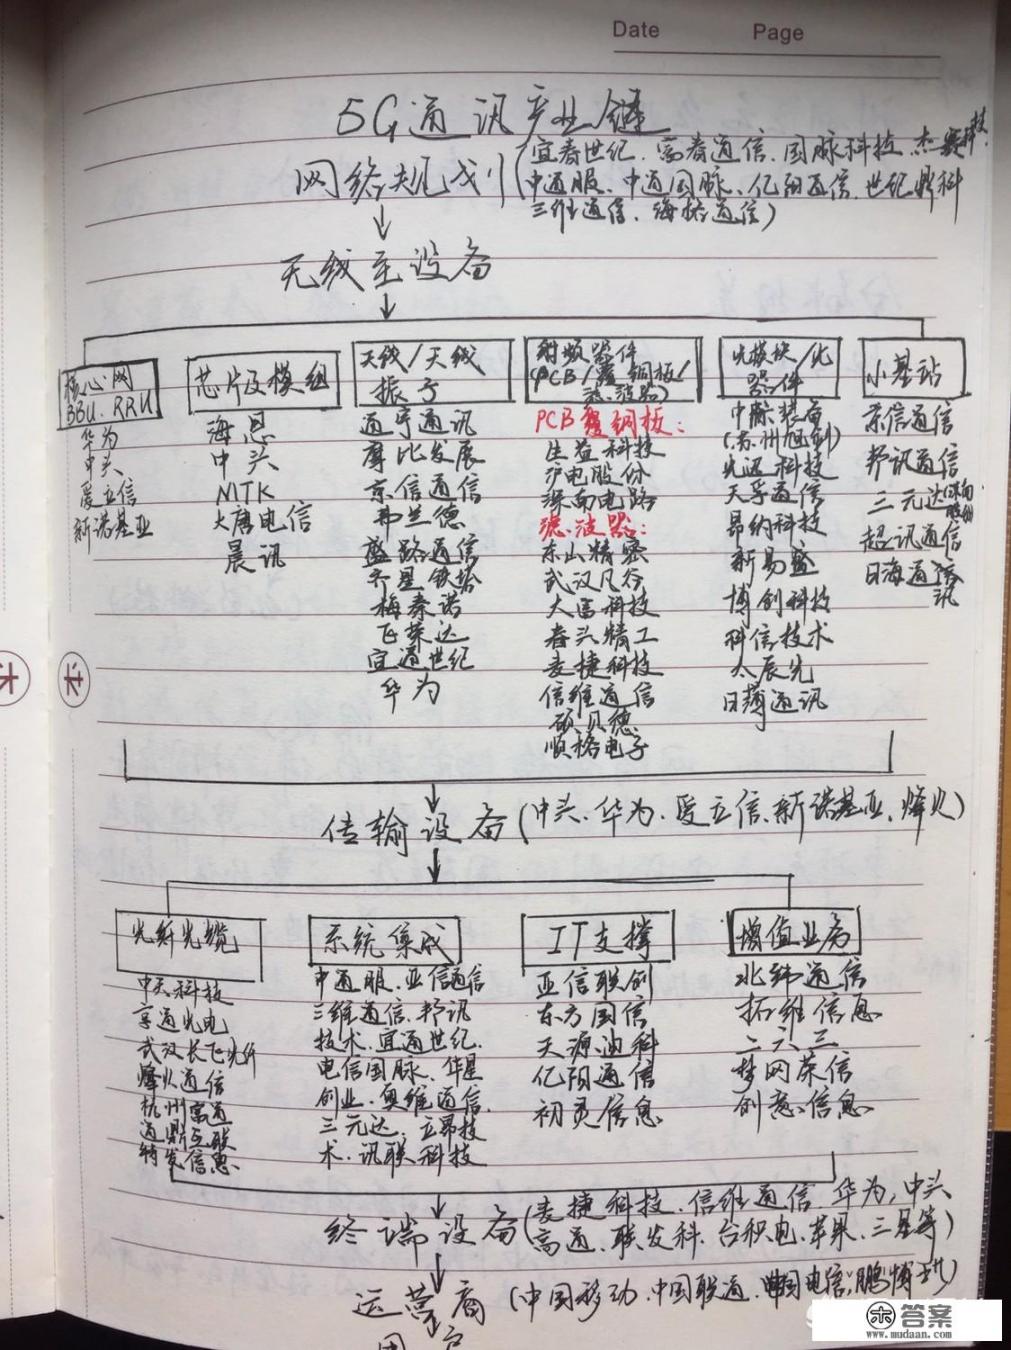 Date Page
5G通讯产业链
网络规划(宜春世纪.富春通信.国脉科技.杰赛科技.
中通服.中通国脉.亿阳通信.世纪鼎科
三维通信.海格通信)
无线主设备
核心网
BBU.RRU
华为
中兴
爱立信
新诺基亚
芯片及模组
海思
中兴
MTK
大唐电信
晨讯
天线/天线
振子
通宇通讯
摩比发展
京信通信
弗兰德
盛路通信
梅泰诺
飞荣达
宜通世纪
华为
射频器件
(PCB/覆铜板/
滤波器)
PCB覆铜板:
生益科技
沪电股份
深南电路
滤波器:
东山精密
武汉凡谷
大富科技
春兴精工
麦捷科技
信维通信
硕贝德
顺络电子
光模块/光
器件
中际装备
(苏州旭创)
光迅科技
天孚通信
昂纳科技
新易盛
博创科技
科信技术
太辰光
日海通讯
小基站
京信通信
邦讯通信
三元达
超讯通信
日海通讯
传输设备(中兴.华为.爱立信.新诺基亚.烽火)
光纤光缆
中天科技
亨通光电
武汉长飞光纤
烽火通信
杭州富通
通鼎互联
特发信息
系统集成
中通服.亚信通信
三维通信.邦讯
技术.宜通世纪.
电信国脉.华星
创业.奥维通信.
三元达.立昂技
术.讯联科技
IT支撑
亚信联创
东方国信
天源迪科
亿阳通信
初灵信息
增值业务
北纬通信
拓维信息
二六三
梦网荣信
创意信息
终端设备(麦捷科技.信维通信.华为,中兴
高通.联发科.台积电.苹果.三星等)
运营商(中国移动.中国联通.中国电信,鹏博士)
用户
答案
www.mudaan.com